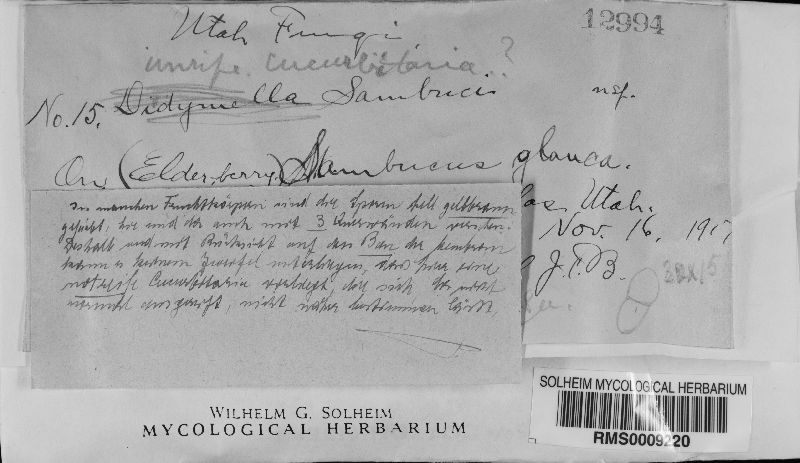 12994
Utah Fungi
unripe Cucurbitaria ?
No. 15. Didymella Sambuci nsp.
On (Elderberry) Sambucus glauca.
Utah.
Nov. 16, 191
J.T.B.
In manchen Fruchtkörpern sind die Sporen hell gelbbraun
gefärbt, hie und da auch mit 3 Querwänden versehen.
Deshalb und mit Rücksicht auf den Bau der
kann es keinem Zweifel unterliegen, dass hier eine
notreife Cucurbitaria vorliegt, die sich, da
ausgereift, nicht näher bestimmen lässt.
WILHELM G. SOLHEIM
MYCOLOGICAL HERBARIUM
SOLHEIM MYCOLOGICAL HERBARIUM
RMS0009220